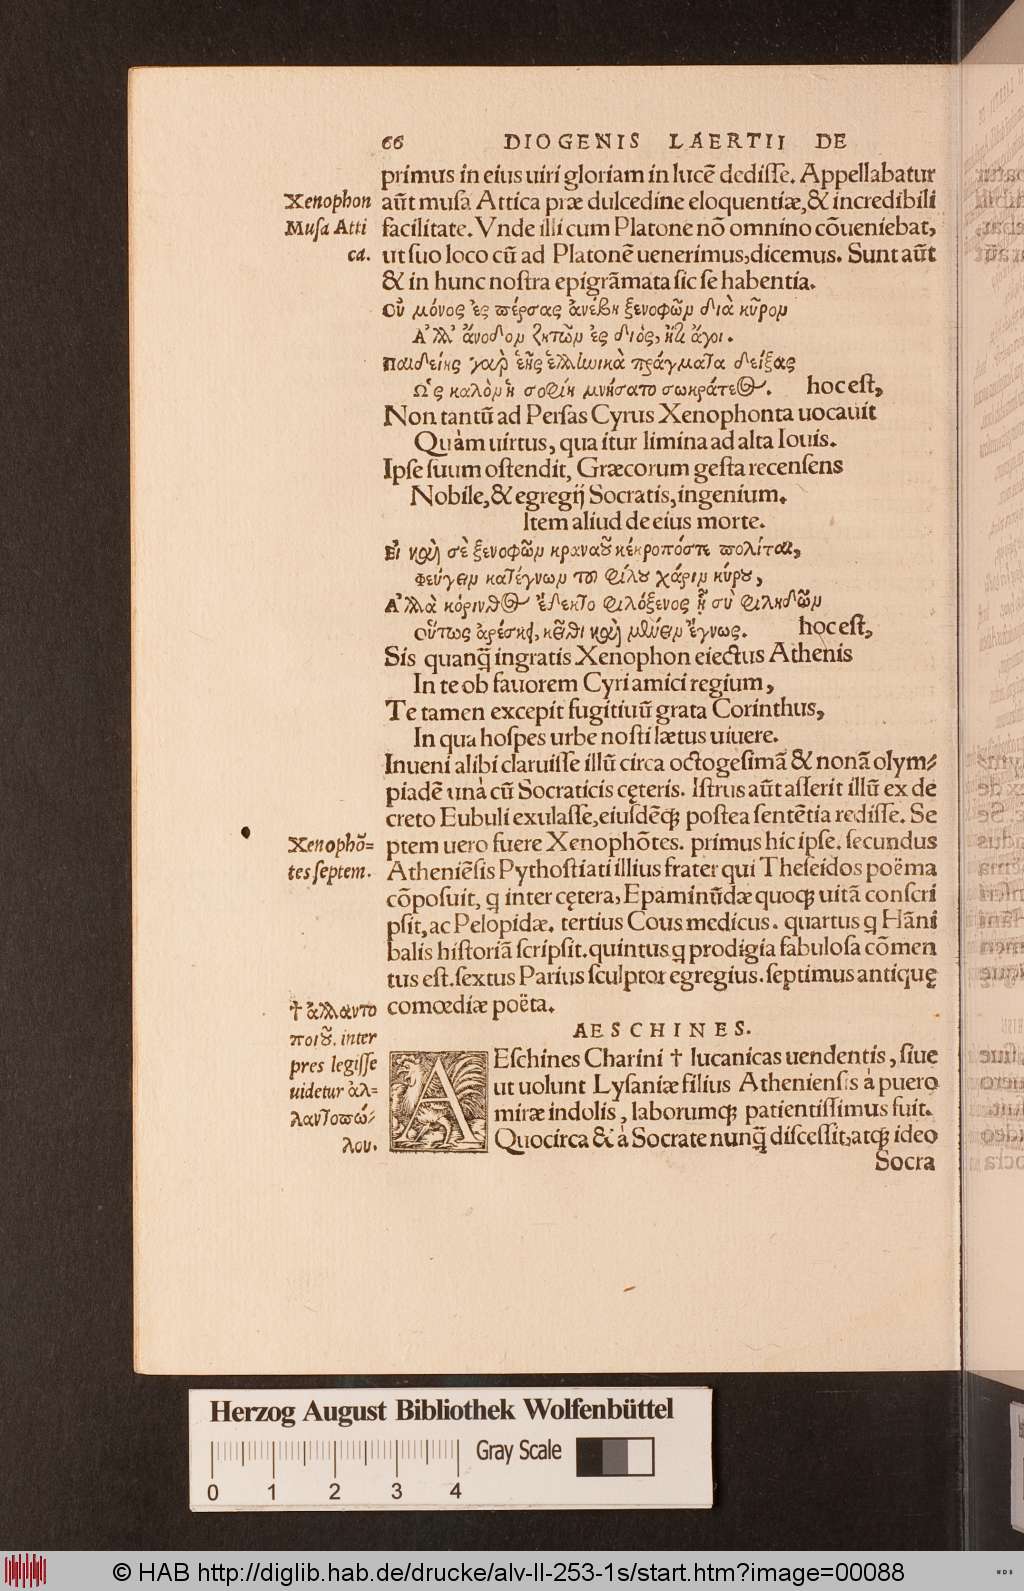 66 DIOGENIS LAERTII DE
primus in eius uiri gloriam in lucē dedisse. Appellabatur
Xenophon
aūt musa Attica præ dulcedine eloquentiæ, & incredibili
Musa Atti
facilitate. Vnde illi cum Platone nō omnino cōueniebat,
ca.
ut suo loco cū ad Platonē uenerimus, dicemus. Sunt aūt
& in hunc nostra epigrāmata sic se habentia.
Οὐ μόνος ἐς πέρσας ἀνέβη ξενοφῶμ διὰ κῦρομ
Ἀλλ' ἄνοδομ ζητῶμ ἐς διὸς, ἥτις ἄγοι.
Παιδείης γὰρ ἑῆς ἑλληνικὰ πράγματα δείξας
Ὡς καλὸμ ἡ σοφίη μνήσατο σωκράτεος. hoc est,
Non tantū ad Persas Cyrus Xenophonta uocauit
Quàm uirtus, qua itur limina ad alta Iouis.
Ipse suum ostendit, Græcorum gesta recensens
Nobile, & egregij Socratis, ingenium.
Item aliud de eius morte.
Εἰ καὶ σὲ ξενοφῶμ κραναοῦ κέκροπός τε πολίται,
φεύγειμ κατέγνωμ τοῦ φίλου χάριμ κύρου,
Ἀλλὰ κόρινθος ἔδεκτο φιλόξενος ᾗ σὺ φιληδῶμ
οὕτως ἀρέσκῃ, κεῖθι καὶ μένειμ ἔγνως. hoc est,
Sis quanq̄ ingratis Xenophon eiectus Athenis
In te ob fauorem Cyri amici regium,
Te tamen excepit fugitiuū grata Corinthus,
In qua hospes urbe nosti lætus uiuere.
Inueni alibi claruisse illū circa octogesimā & nonā olym⸗
piadē unà cū Socraticis cęteris. Istrus aūt asserit illū ex de
creto Eubuli exulasse, eiusdēq; postea sentētia redisse. Se
Xenophō=
ptem uero fuere Xenophōtes. primus hic ipse. secundus
tes septem.
Atheniēsis Pythostiati illius frater qui Theseidos poëma
cōposuit, q inter cętera, Epaminūdæ quoq; uitā conscri
psit, ac Pelopidæ. tertius Cous medicus. quartus q Hāni
balis historiā scripsit. quintus q prodigia fabulosa cōmen
tus est. sextus Parius sculptor egregius. septimus antiquę
comœdiæ poëta.
AESCHINES.
† ἀλλαντο
ποιοῦ. inter
pres legisse
uidetur ἀλ=
λαντοπώ⸗
λου.
AEschines Charini † lucanicas uendentis, siue
ut uolunt Lysaniæ filius Atheniensis à puero
miræ indolis, laborumq; patientissimus fuit.
Quocirca & à Socrate nunq̄ discessit, atq; ideo
Socra
Herzog August Bibliothek Wolfenbüttel
Gray Scale
0 1 2 3 4
© HAB http://diglib.hab.de/drucke/alv-ll-253-1s/start.htm?image=00088